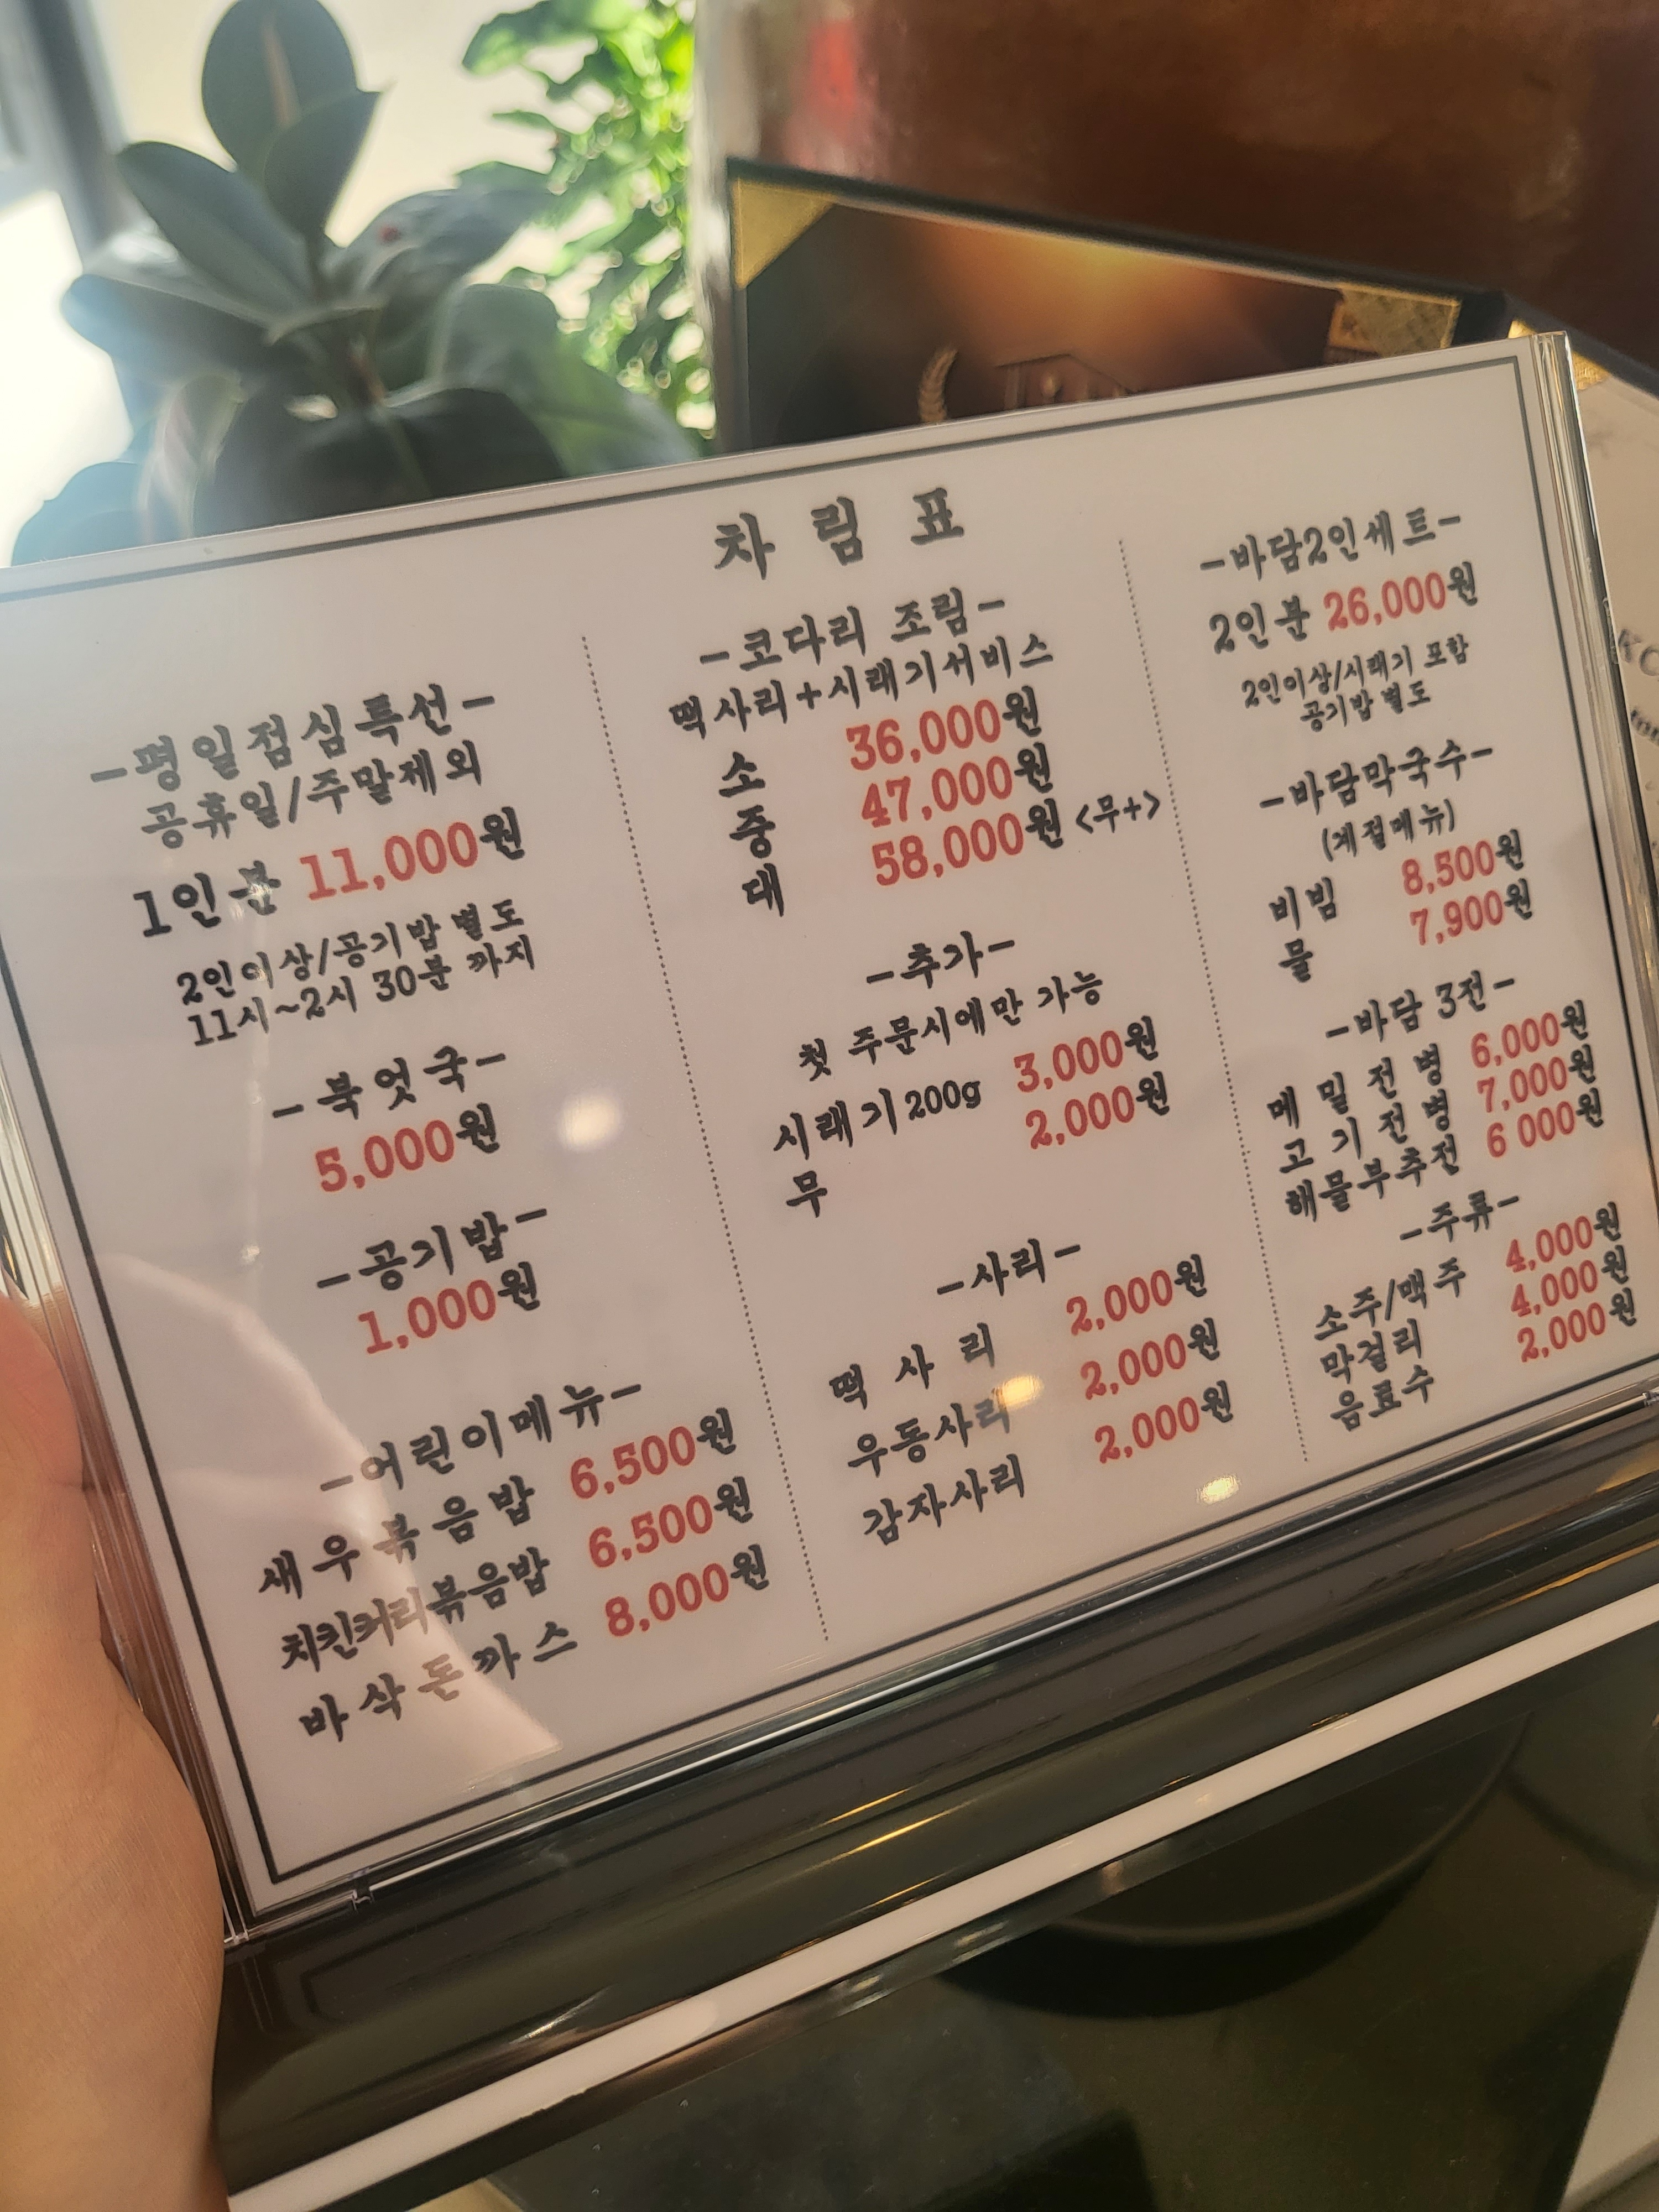 차림표
-평일점심특선-
공휴일/주말제외
1인분 11,000원
2인이상/공기밥 별도
11시~2시 30분 까지
-북엇국-
5,000원
-공기밥-
1,000원
-어린이메뉴-
새우볶음밥 6,500원
치킨커리볶음밥 6,500원
바삭돈까스 8,000원
-코다리 조림-
떡사리+시래기서비스
소 36,000원
중 47,000원
대 58,000원 <무+>
-추가-
첫 주문시에만 가능
시래기200g 3,000원
무 2,000원
-사리-
떡사리 2,000원
우동사리 2,000원
감자사리 2,000원
-바담2인세트-
2인분 26,000원
2인이상/시래기 포함
공기밥 별도
-바담막국수-
(계절메뉴)
비빔 8,500원
물 7,900원
-바담 3전-
메밀전병 6,000원
고기전병 7,000원
해물부추전 6 000원
-주류-
소주/맥주 4,000원
막걸리 4,000원
음료수 2,000원